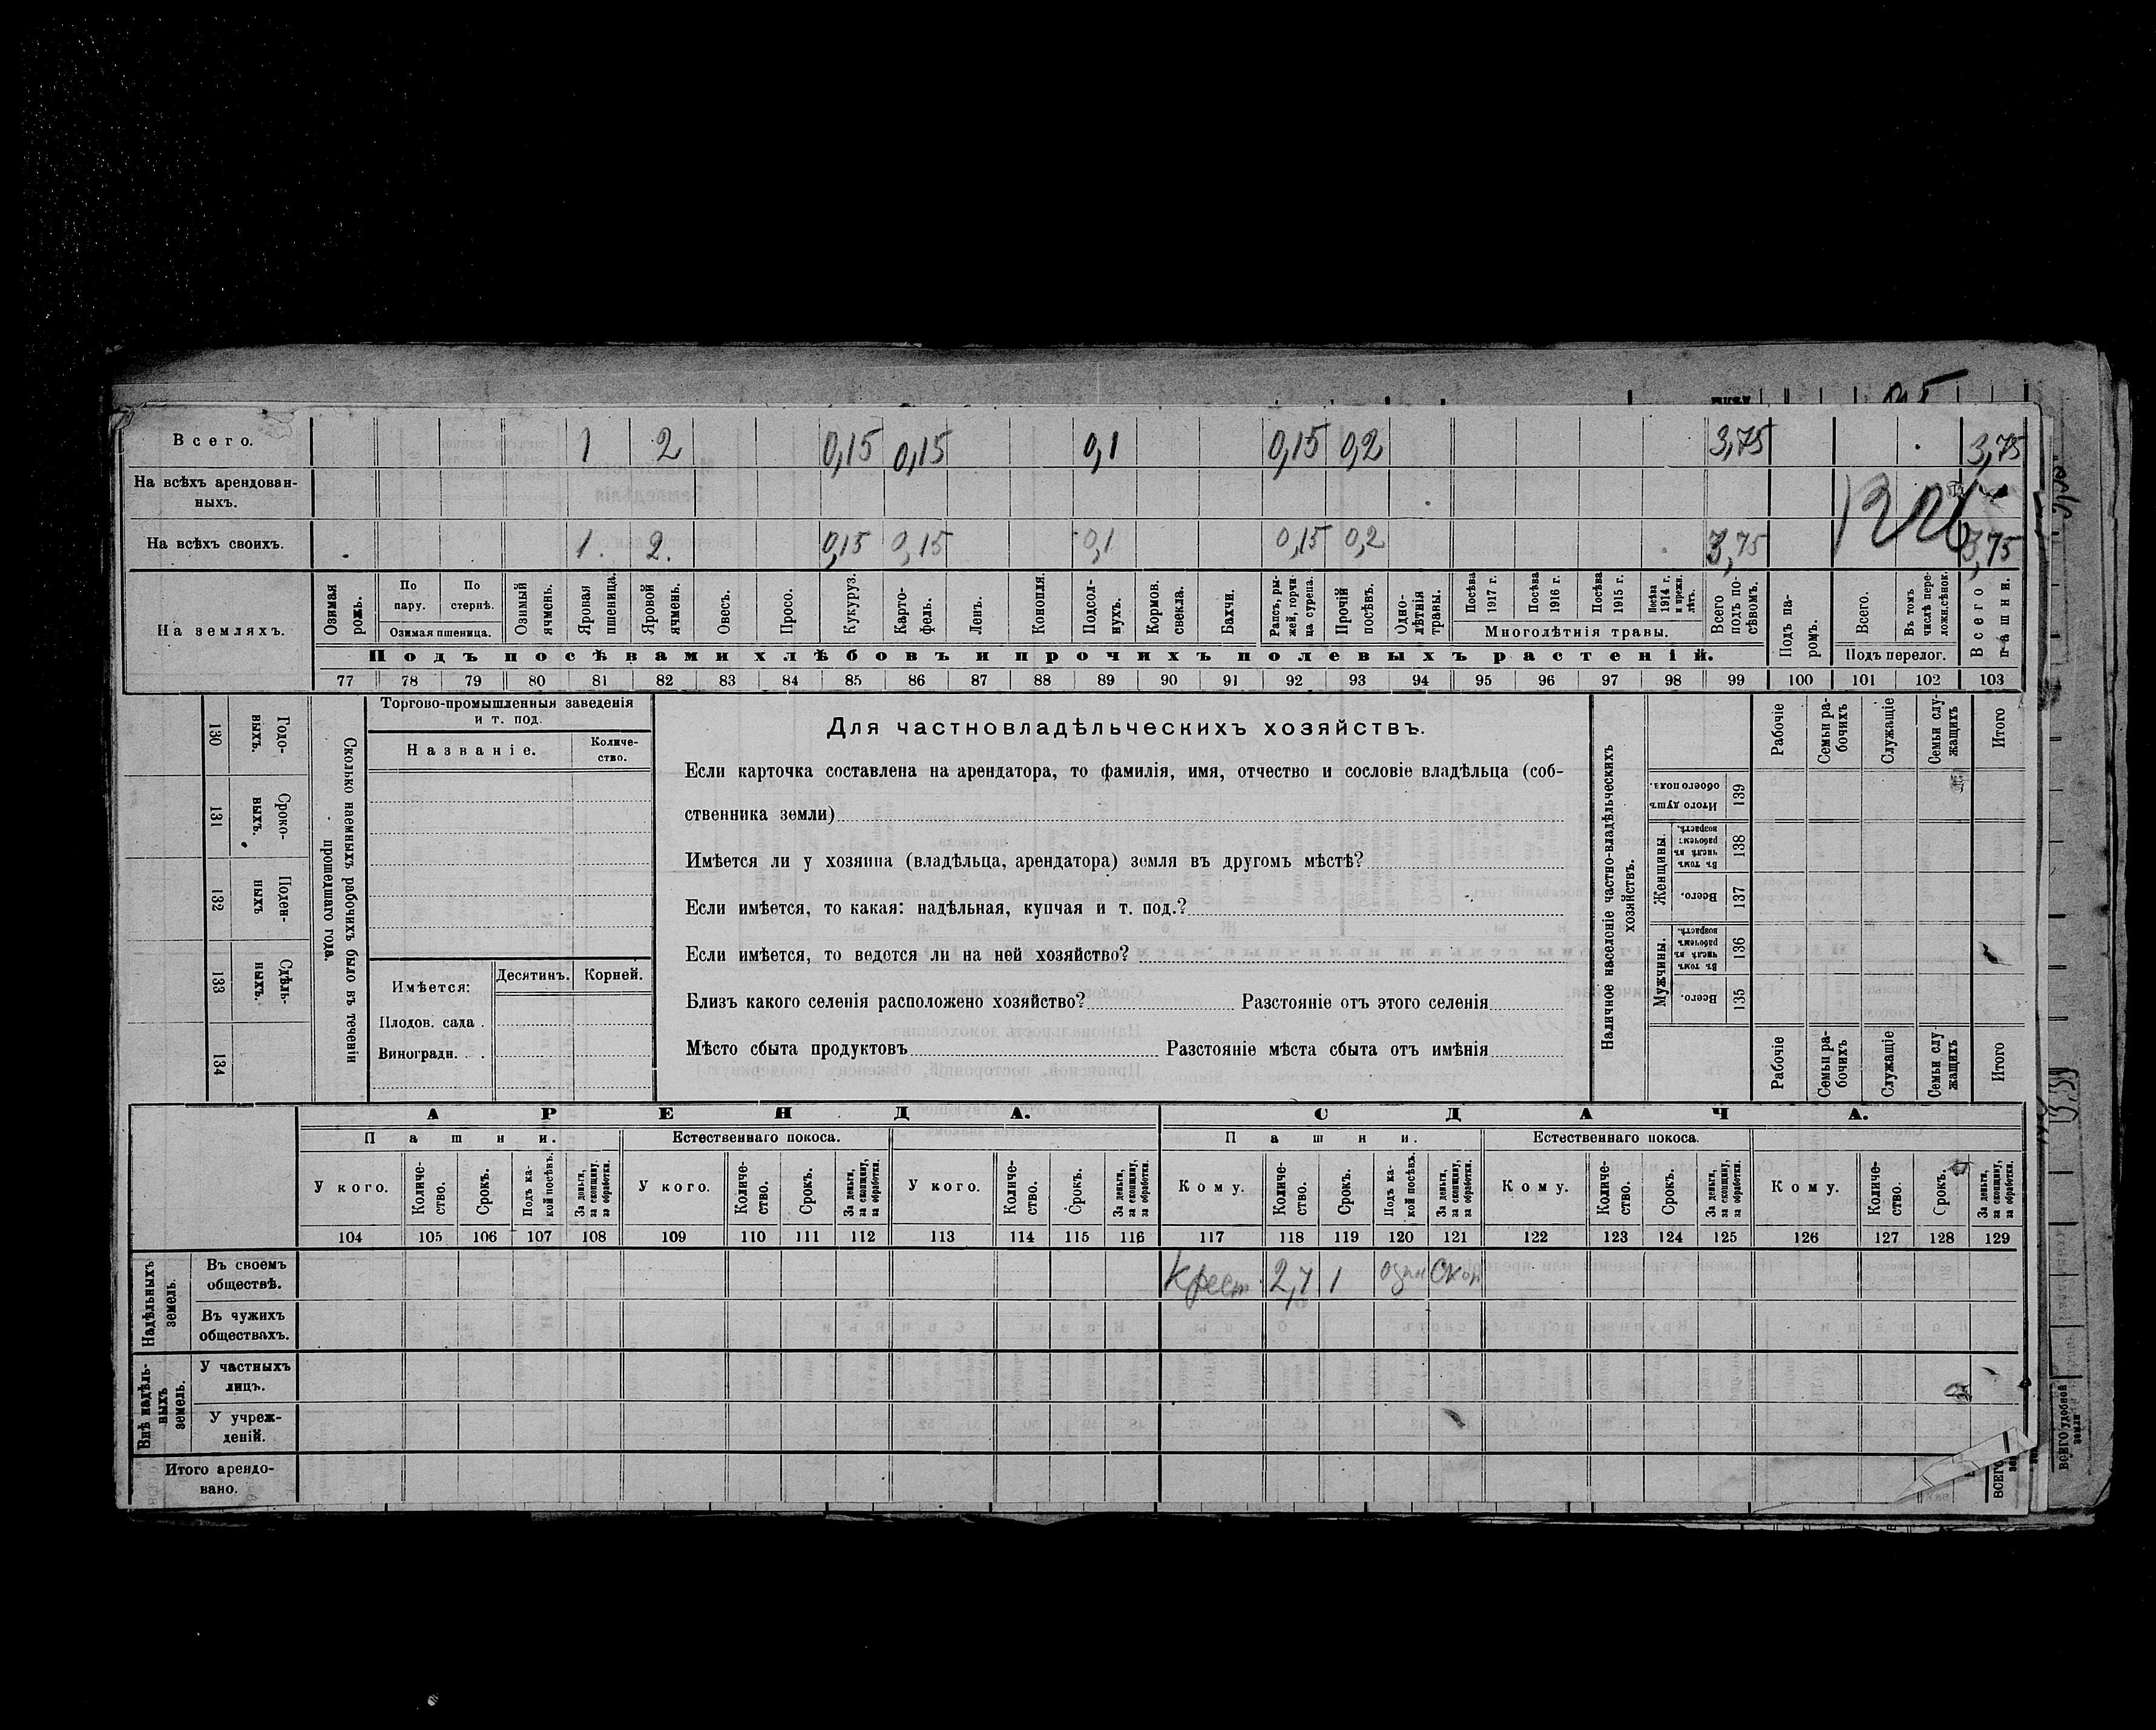 В с е г о. 1 2 0,15 0,15 0,1 0,15 0,2 3,75 3,75
На всѣхъ арендован-
ныхъ.
На всѣхъ своихъ. 1. 2. 0,15 0,15 0,1 0,15 0,2 3,75 3,75
На земляхъ.
Озимая рожь.
По пару.
По стернѣ.
Озимая пшеница.
Озимый ячмень.
Яровая пшеница.
Яровой ячмень.
Овесъ.
Просо.
Кукуруз.
Карто-
фель.
Ленъ.
Конопля.
Подсол-
нухъ.
Кормов. свекла.
Бахчи.
Рапсъ, ры-
жей, горчи-
ца сурепа.
Прочій посѣвъ.
Одно-
лѣтнія травы.
Посѣва 1917 г.
Посѣва 1916 г.
Посѣва 1915 г.
Посѣва 1914 г. и прежн. лѣтъ.
Многолѣтнія травы.
Всего подъ по-
сѣвомъ.
Подъ па-
ромъ.
Всего.
Въ томъ числѣ пере-
ложн.сѣнок.
Подъ перелог.
Всего пашни.
Подъ посѣвами хлѣбовъ и прочихъ полевыхъ растеній.
77 78 79 80 81 82 83 84 85 86 87 88 89 90 91 92 93 94 95 96 97 98 99 100 101 102 103
130 Годо-
выхъ.
131 Сроко-
выхъ.
132 Поден-
ныхъ
133 Сдѣль-
ныхъ.
134
Сколько наемныхъ рабочихъ было въ теченіи
прошедшаго года.
Торгово-промышленныя заведенія
и т. под.
Названіе. Количе-
ство.
Десятинъ. Корней.
Имѣется:
Плодов. сада .
Виноградн. . .
Для частновладѣльческихъ хозяйствъ.
Если карточка составлена на арендатора, то фамилія, имя, отчество и сословіе владѣльца (соб-
ственника земли)
Имѣется ли у хозяина (владѣльца, арендатора) земля въ другомъ мѣстѣ?
Если имѣется, то какая: надѣльная, купчая и т. под.?
Если имѣется, то ведется ли на ней хозяйство?
Близъ какого селенія расположено хозяйство? Разстояніе отъ этого селенія
Мѣсто сбыта продуктовъ Разстояніе мѣста сбыта отъ имѣнія
Наличное населеніе частно-владѣльческихъ
хозяйствъ.
Рабочіе
Семьи ра-
бочихъ
Служащіе
Семьи слу-
жащихъ
Итого
Итого душъ обоего пола. 139
Женщины.
Въ томъ числѣ въ рабочемъ возрастѣ. 138
Всего. 137
Мужчины.
Въ томъ числѣ въ рабочемъ возрастѣ. 136
Всего. 135
Рабочіе
Семьи ра-
бочихъ
Служащіе
Семьи слу
жащихъ
Итого
АРЕНДА. СДАЧА.
Пашни. Естественнаго покоса. Пашни. Естественнаго покоса.
У кого.
Количе-
ство.
Срокъ.
Подъ ка-
кой посѣвъ.
За деньги, за скопщину, за обработки.
У кого.
Количе-
ство.
Срокъ.
За деньги, за скопщину, за обработки.
У кого.
Количе-
ство.
Срокъ.
За деньги, за скопщину, за обработки.
Кому.
Количе-
ство.
Срокъ.
Подъ ка-
кой посѣвъ.
За деньги, за скопщину, за обработки.
Кому.
Количе-
ство.
Срокъ.
За деньги, за скопщину, за обработки.
Кому.
Количе-
ство.
Срокъ.
За деньги, за скопщину, за обработки.
104 105 106 107 108 109 110 111 112 113 114 115 116 117 118 119 120 121 122 123 124 125 126 127 128 129
Надѣльныхъ земель.
Въ своемъ
обществѣ. Крест 1 Скоп
Въ чужихъ
обществахъ.
Внѣ надѣль-
ныхъ земель.
У частныхъ
лицъ.
У учреж-
деній.
Итого арендо-
вано.
ВСЕГО
ВСЕГО удобной
земли